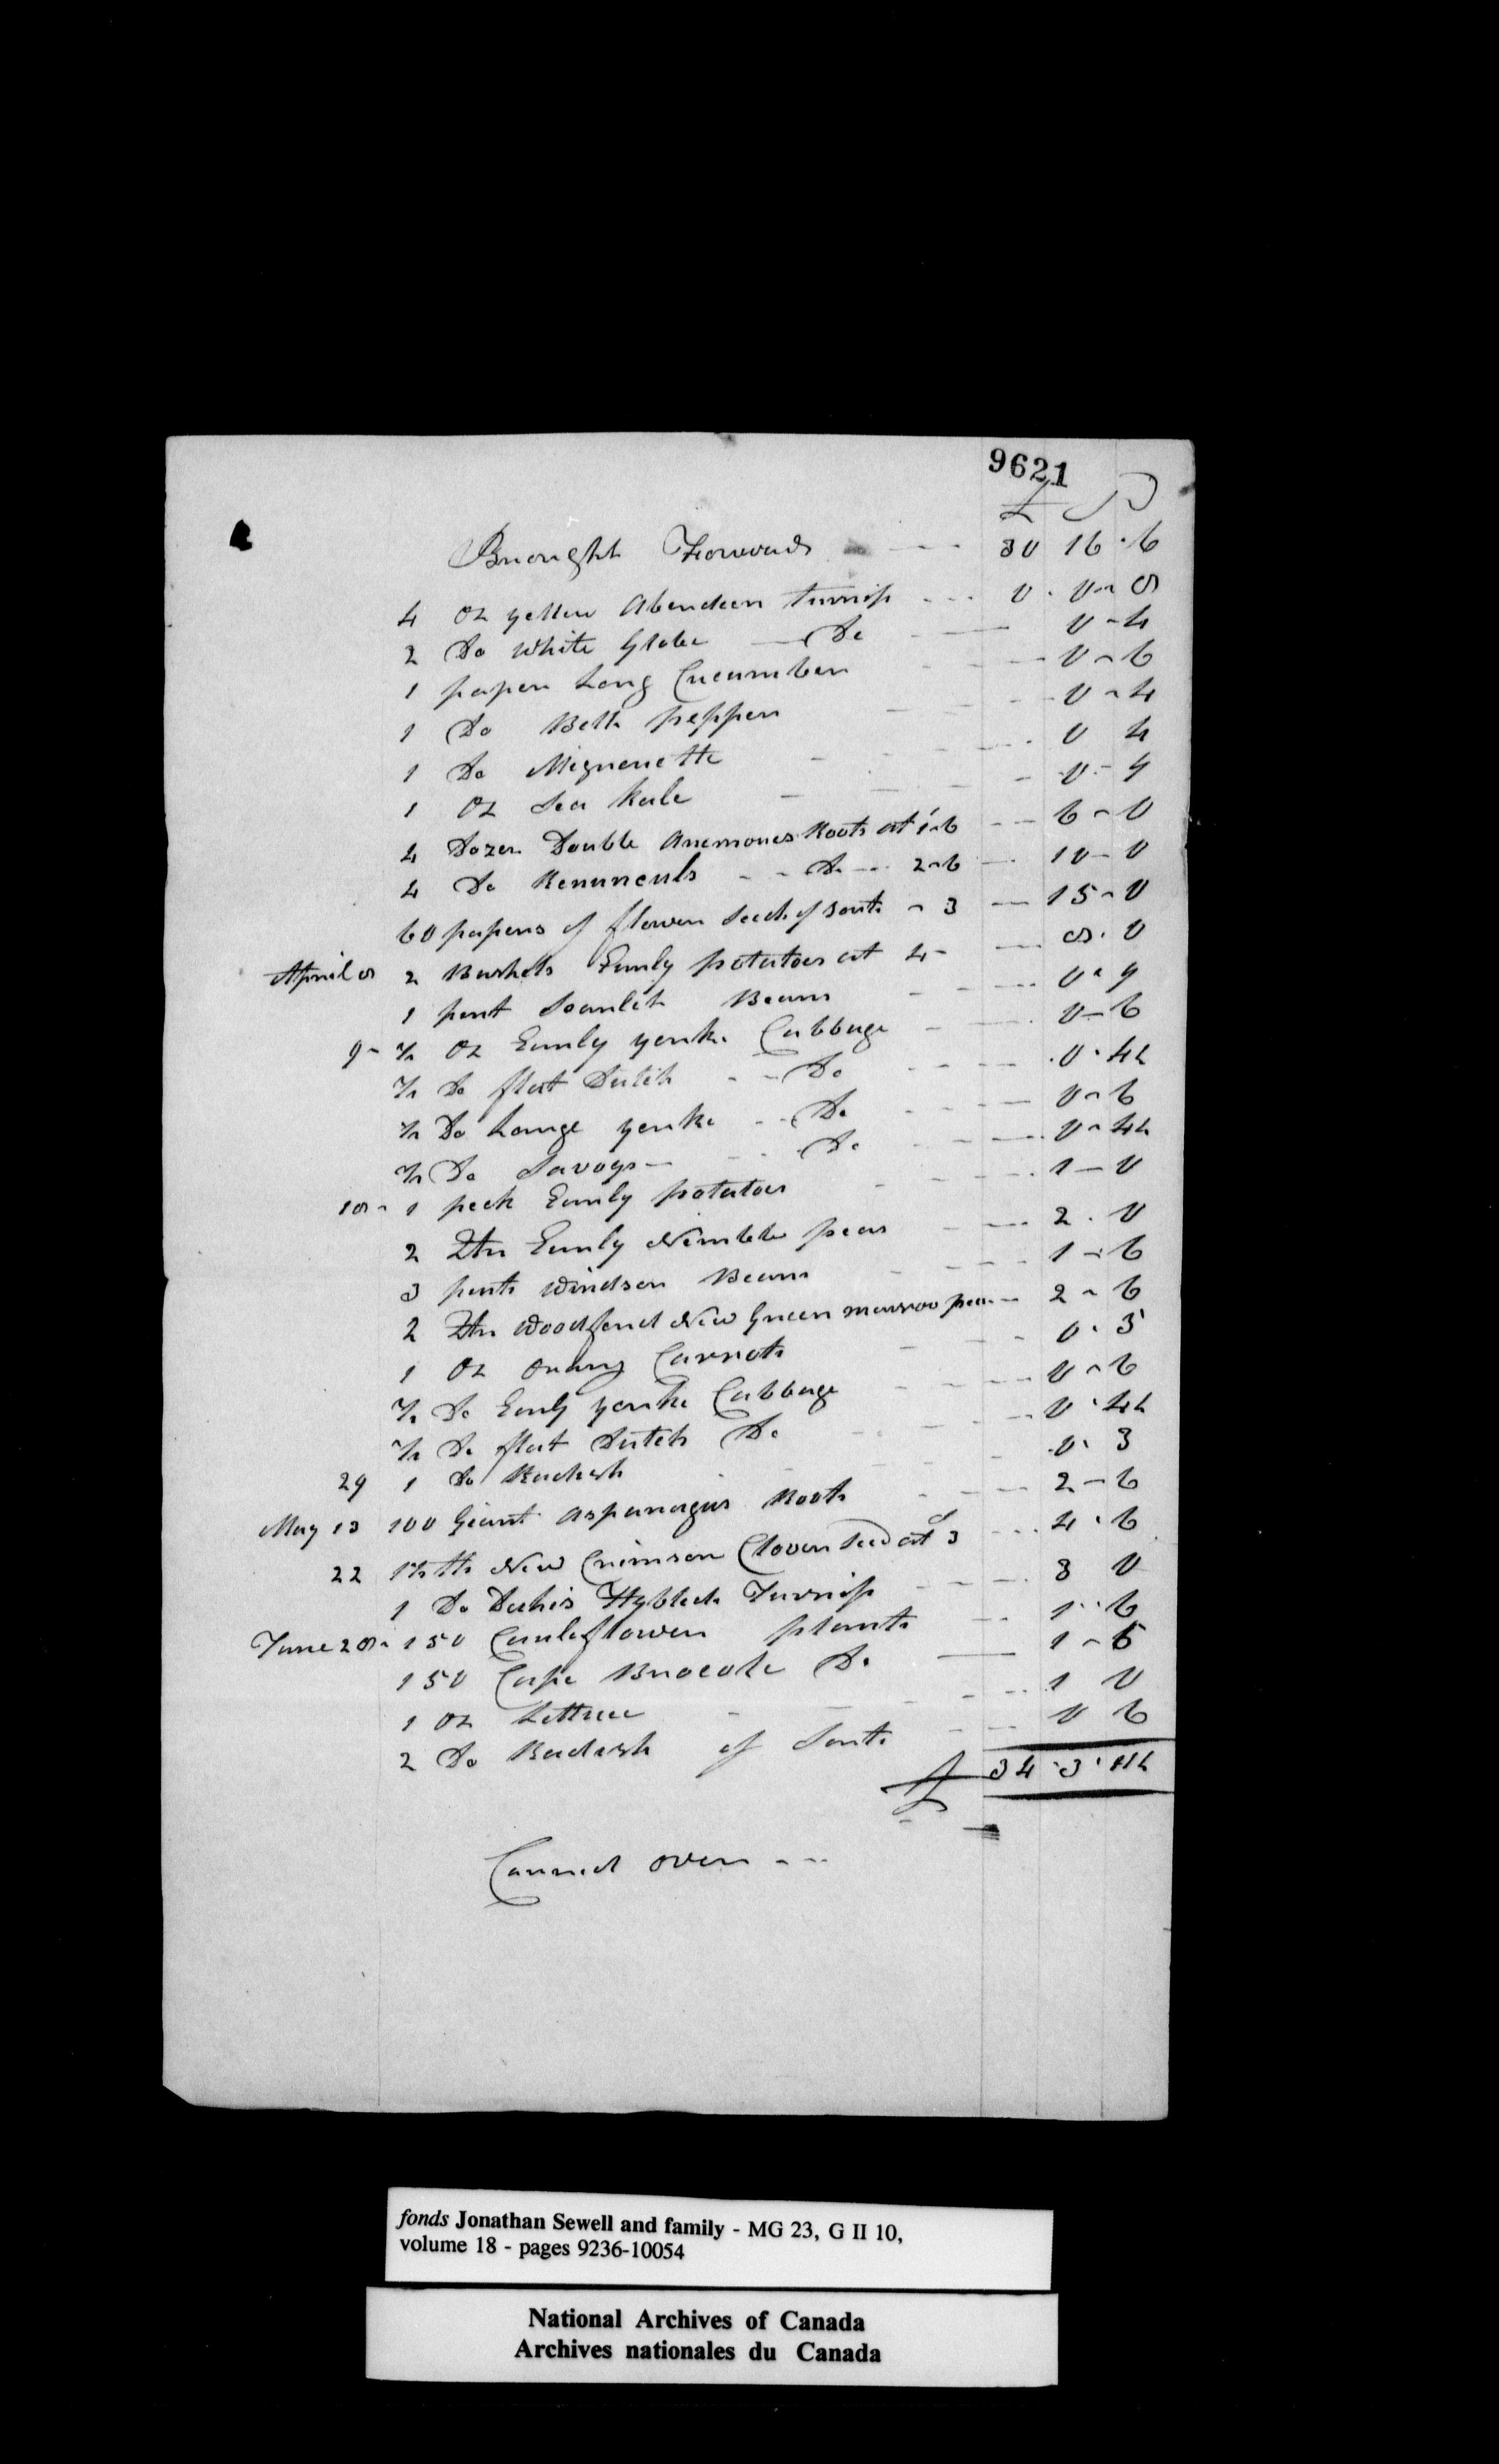 9621
£ S D
Brought Forward --- 30 16 - 6
4 oz yellow Aberdeen turnip --- 0 - 0 - 8
2 Do White Globe — Do — 0 - 4
1 paper Long Cucumber - -- 0 - 6
1 Do Bell pepper - -- 0 - 4
1 Do Mignonette - -- 0 4
1 oz Sea Kale - -- 0 - 9
4 Dozen Double Anemones Roots at 1-6 --- 6 - 0
4 Do Renunculs -- Do --- 2-6 --- 10 - 0
60 papers of flower Seeds of Sorts - 3 --- 15 - 0
April 8 2 Bushels Early potatoes at 4- --- 8 - 0
1 pint Scarlet Beans - --- 0 - 9
9 - ½ oz Early yorke Cabbage - --- 0 - 6
½ Do flat Dutch -- Do --- 0 - 4½
½ Do Large yorke -- Do --- 0 - 6
½ Do Savoys — Do --- 0 - 4½
18 - 1 peck Early potatoes --- 1 - 0
2 Qtr Early Nimble peas --- 2 - 0
3 pints Windsor Beans --- 1 - 6
2 Qtr Woodford New Green marroo peas -- 2 - 6
1 oz Orang Carrots - -- 0 - 5
½ Do Early yorke Cabbage --- 0 - 6
½ Do flat Dutch Do --- 0 - 4½
29 1 Do Radish --- 0 - 3
May 13 100 Giant Asparagus Roots --- 2 - 6
22 1½ lb New Crimson Clover Seed at 3 --- 4 - 6
1 Do Turnip --- 3 0
June 28 - 150 Cauleflower plants --- 1 - 6
150 Cape Brocole Do — 1 - 6
1 oz Lettuce - -- 1 0
2 Do Radish of Sorts --- 0 6
£ 34 - 3 - 11½
Carried over ---
fonds Jonathan Sewell and family - MG 23, G II 10,
volume 18 - pages 9236-10054
National Archives of Canada
Archives nationales du Canada